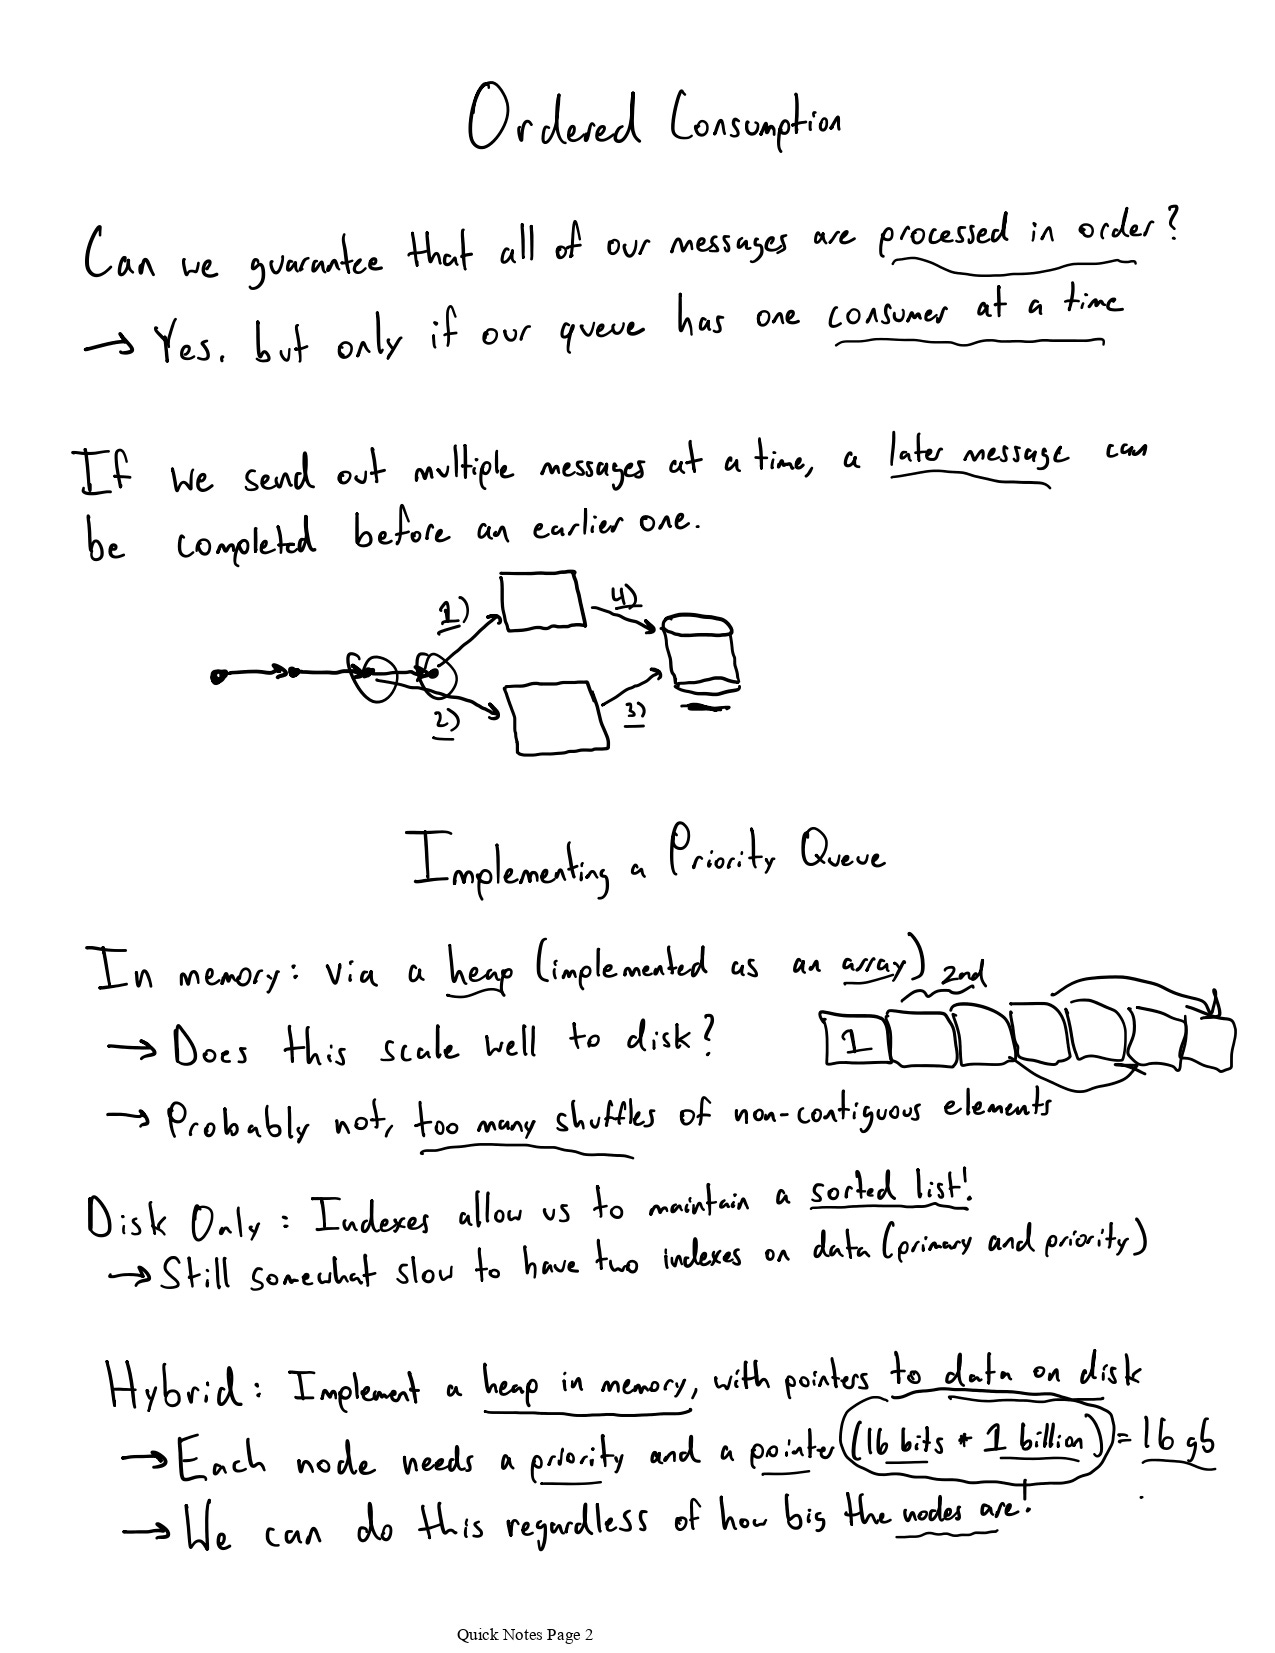 Ordered Consumption
Can we guarantee that all of our messages are processed in order?
→ Yes, but only if our queue has one consumer at a time
If we send out multiple messages at a time, a later message can
be completed before an earlier one.
1)
4)
2)
3)
Implementing a Priority Queue
In memory: via a heap (implemented as an array)
2nd
1
→ Does this scale well to disk?
→ Probably not, too many shuffles of non-contiguous elements
Disk Only: Indexes allow us to maintain a sorted list!
→ Still somewhat slow to have two indexes on data (primary and priority)
Hybrid: Implement a heap in memory, with pointers to data on disk
→ Each node needs a priority and a pointer (16 bits * 1 billion) = 16 gb
→ We can do this regardless of how big the nodes are!
Quick Notes Page 2